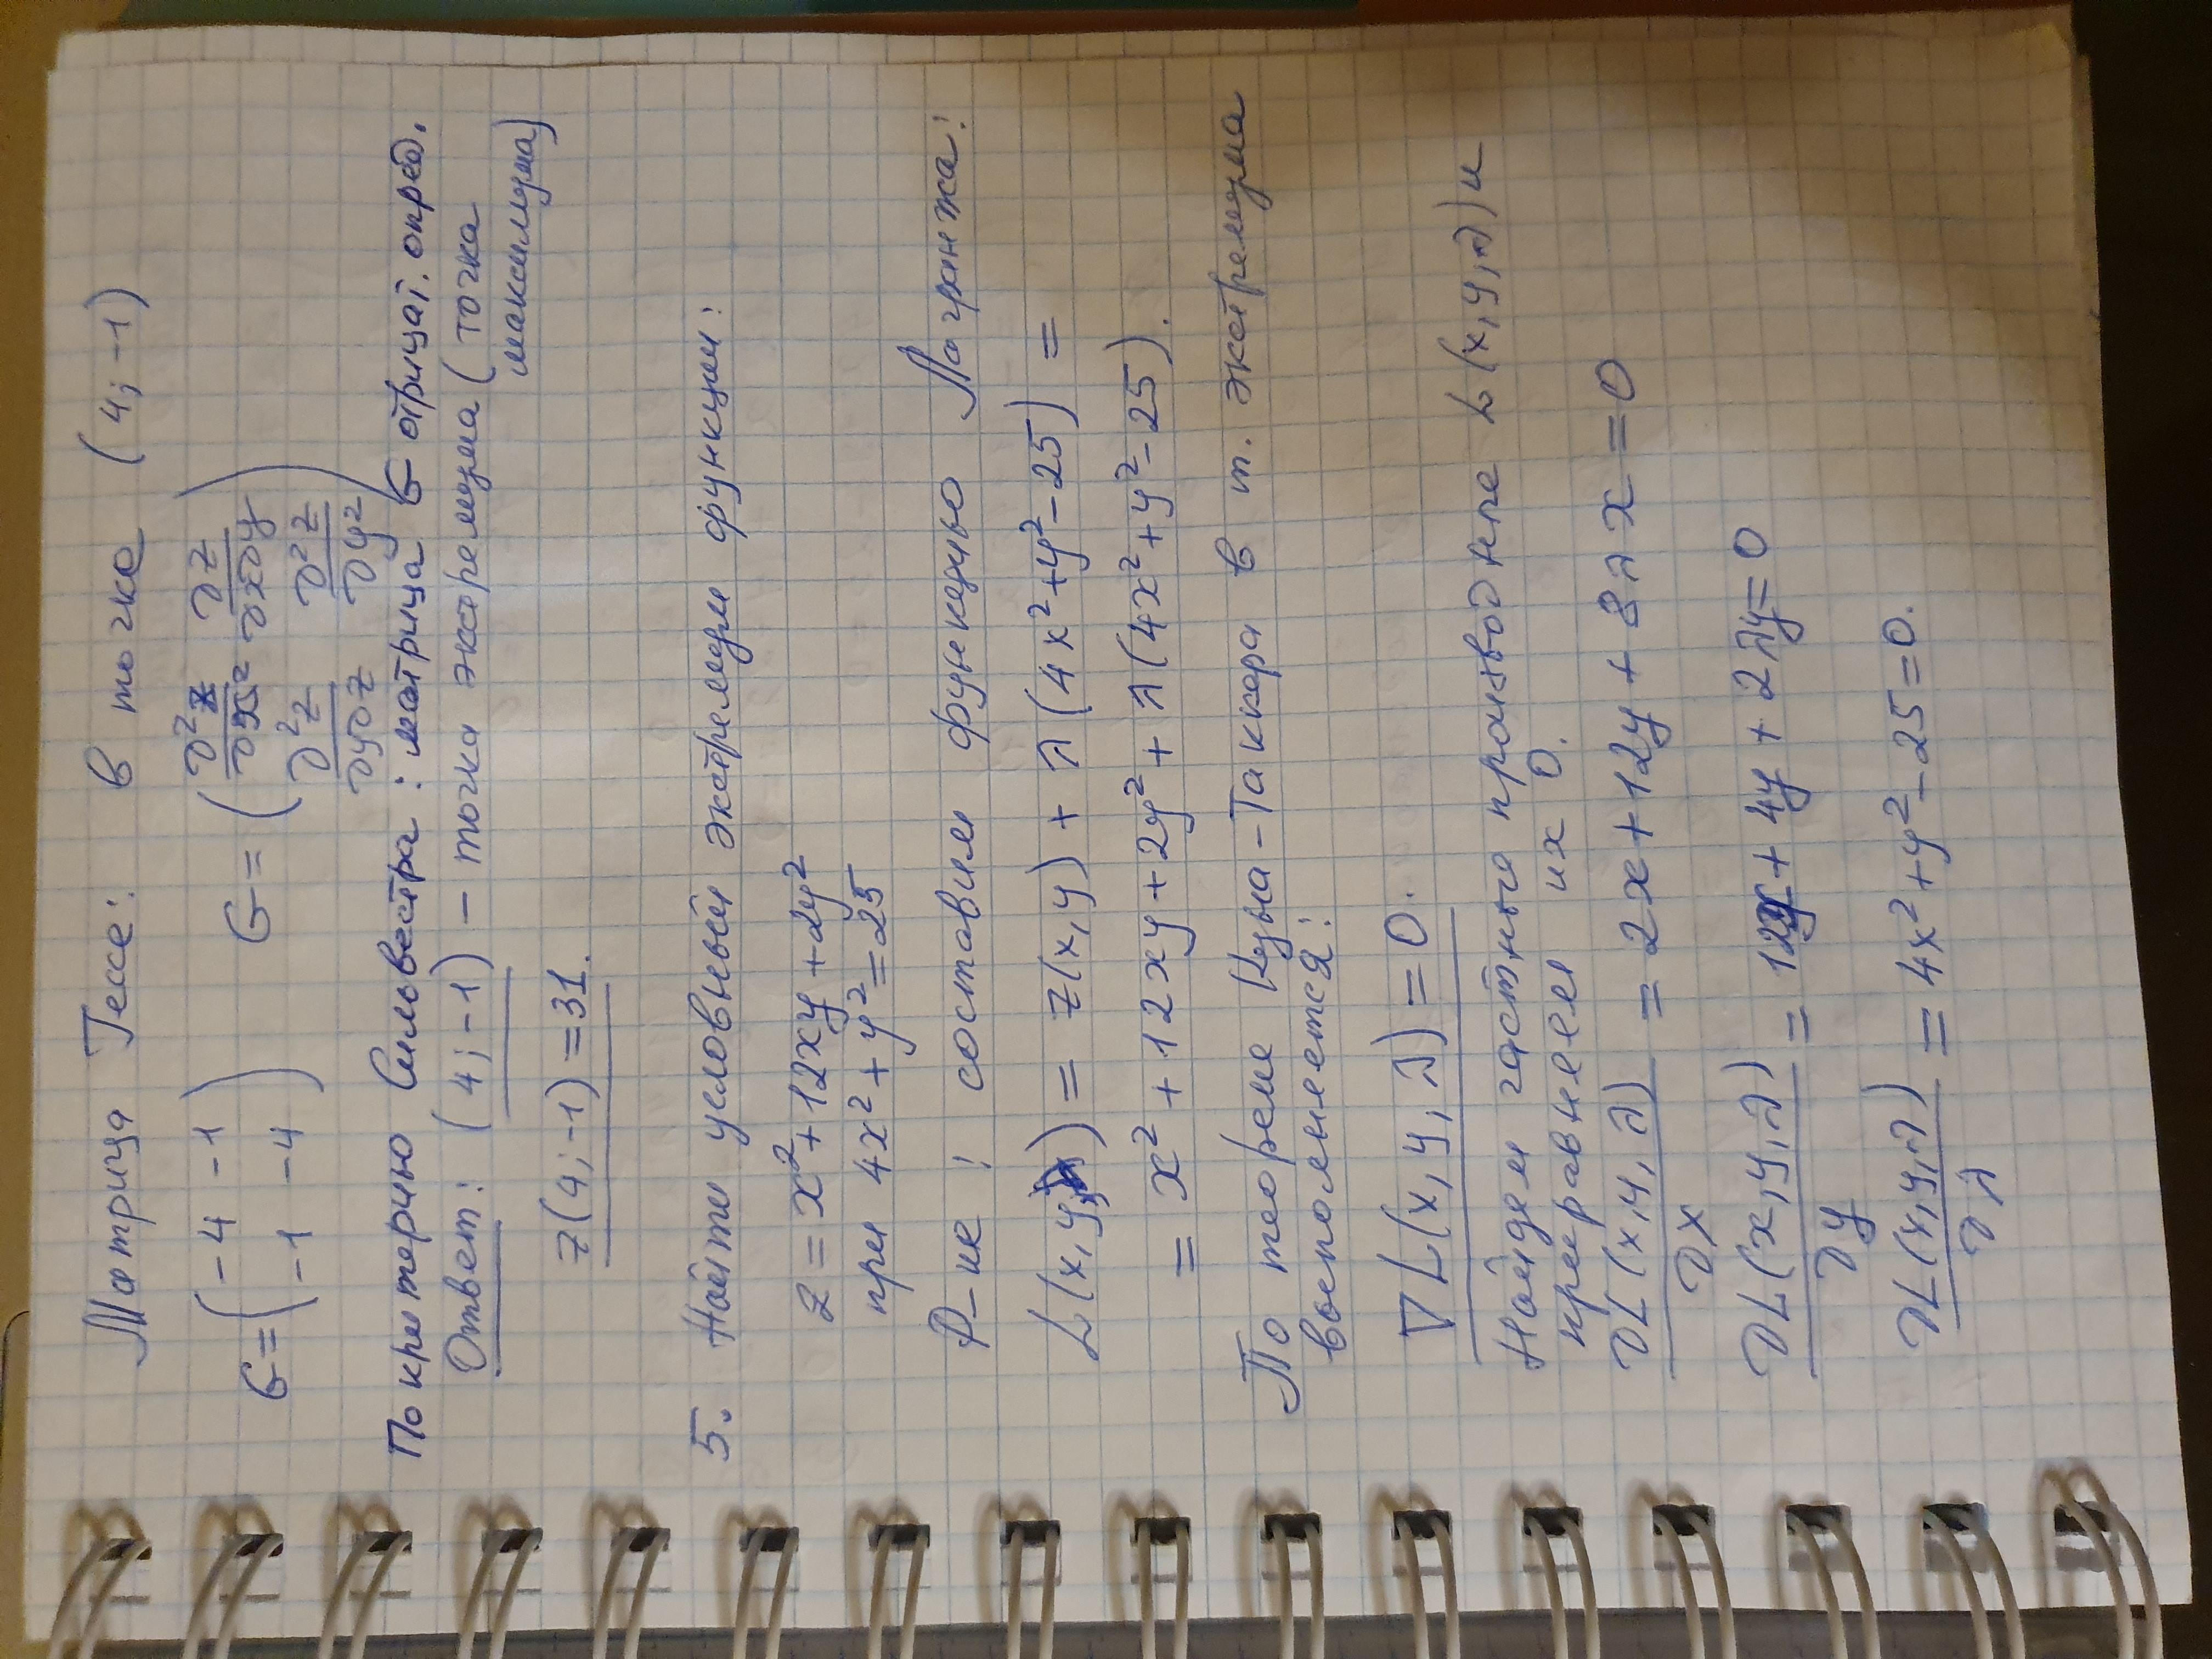 Матрица Гессе: в точке (4; -1)
G = (-4 -1) G = (∂²z/∂x² ∂z/∂x∂y)
(-1 -4) (∂²z/∂y∂z ∂²z/∂y²)
По критерию Сильвестра: матрица G отрицат. опред.
Ответ: (4; -1) – точка экстремума (точка
максимума)
z(4; -1) = 31.
5. Найти условный экстремум функции:
z = x² + 12xy + 2y²
при 4x² + y² = 25
Р-ие: составим функцию Лагранжа:
L(x, y, λ) = z(x, y) + λ(4x² + y² - 25) =
= x² + 12xy + 2y² + λ(4x² + y² - 25).
По теореме Куна-Таккера в т. экстремума
выполняется:
∇L(x, y, λ) = 0.
Найдем частные производные L(x, y, λ) и
приравняем их 0.
∂L(x, y, λ)/∂x = 2x + 12y + 8λx = 0
∂L(x, y, λ)/∂y = 12x + 4y + 2λy = 0
∂L(x, y, λ)/∂λ = 4x² + y² - 25 = 0.